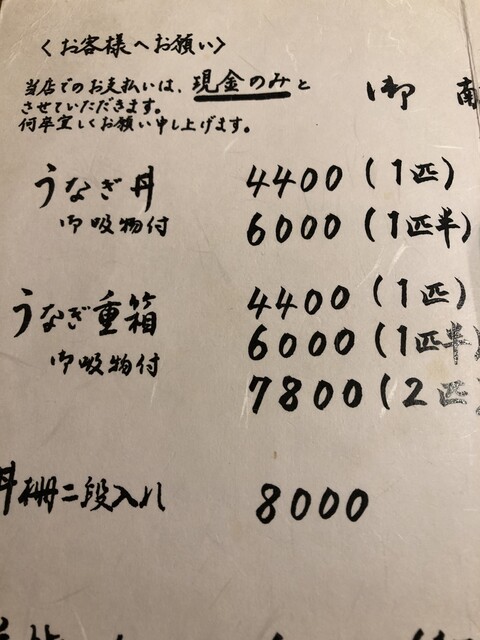 〈お客様へお願い〉
当店でのお支払いは、現金のみと
させていただきます。
何卒宜しくお願い申し上げます。
御
うなぎ丼 4400(1匹)
御吸物付 6000(1匹半)
うなぎ重箱 4400(1匹)
6000(1匹半)
御吸物付
7800(2匹
丼柵二段入れ 8000